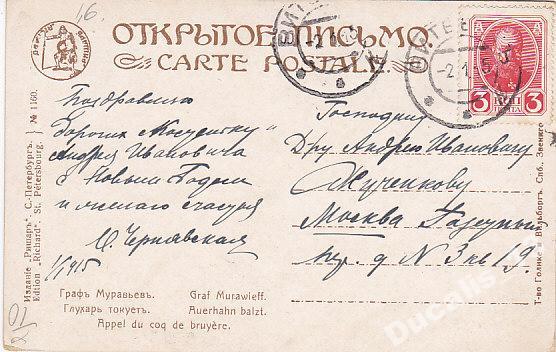 16.
ОТКРЫТОЕ ПИСЬМО
CARTE POSTALE
3 КОП 3
ПОЧТА
Поздравляю
дорогих
Андрея Ивановича
с Новым Годом
и желаю счастья
О. Чернявская
1/1 915
Господину
Д-ру Андрею Ивановичу
Жученкову
Москва
д N 3 кв 19.
Графъ Муравьевъ. Graf Murawieff.
Глухарь токуетъ. Auerhahn balzt.
Appel du coq de bruyère.
Изданіе „Ришаръ“ С.-Петербургъ. № 1160.
Edition „Richard“ St. Pétersbourg.
Т-во Голике и Вильборгъ. Спб. Звениг